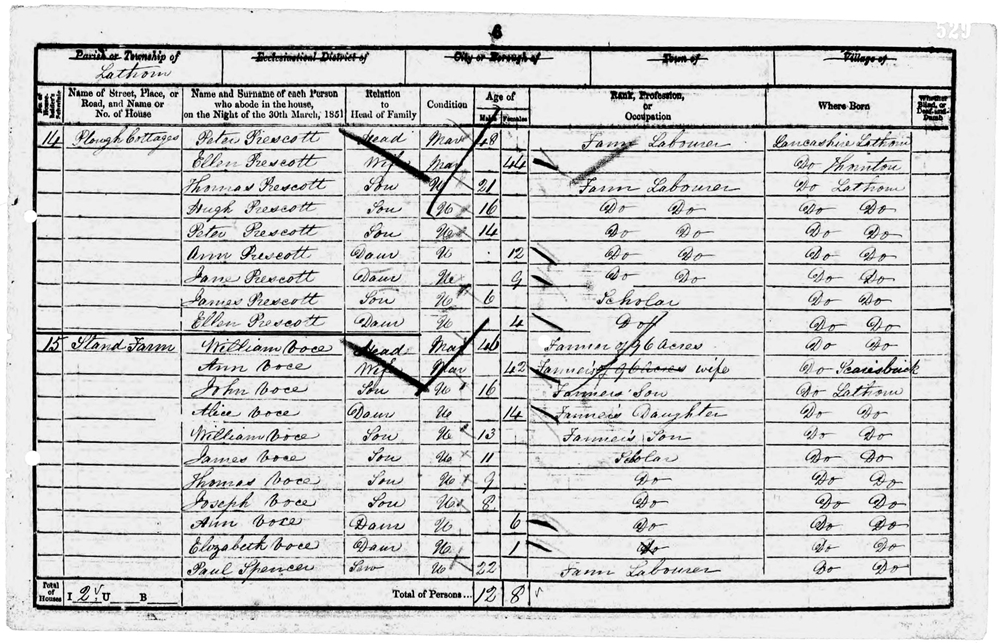 6
529
Parish or Township of Ecclesiastical District of City or Borough of Town of Village of
Lathom
No. of House- holder's Schedule Name of Street, Place, or Road, and Name or No. of House Name and Surname of each Person who abode in the house, on the Night of the 30th March, 1851 Relation to Head of Family Condition Age of Males Females Rank, Profession, or Occupation Where Born Whether Blind, or Deaf-and- Dumb
14 Plough Cottages Peter Prescott Head Mar 48 Farm Labourer Lancashire Lathom
Ellen Prescott Wife Mar 44 Do Thornton
Thomas Prescott Son U 21 Farm Labourer Do Lathom
Hugh Prescott Son U 16 Do Do Do Do
Peter Prescott Son U 14 Do Do Do Do
Ann Prescott Daur U 12 Do Do Do Do
Jane Prescott Daur U 9 Do Do Do Do
James Prescott Son U 6 Scholar Do Do
Ellen Prescott Daur U 4 Do Do Do
15 Stand Farm William Voce Head Mar 46 Farmer of 96 Acres Do Do
Ann Voce Wife Mar 42 Farmer's wife Do Scarisbrick
John Voce Son U 16 Farmer's Son Do Lathom
Alice Voce Daur U 14 Farmer's Daughter Do Do
William Voce Son U 13 Farmer's Son Do Do
James Voce Son U 11 Scholar Do Do
Thomas Voce Son U 9 Do Do Do
Joseph Voce Son U 8 Do Do Do
Ann Voce Daur U 6 Do Do Do
Elizabeth Voce Daur U 1 Do Do Do
Paul Spencer Serv U 22 Farm Labourer Do Do
Total of Houses I 2 U B Total of Persons... 12 8